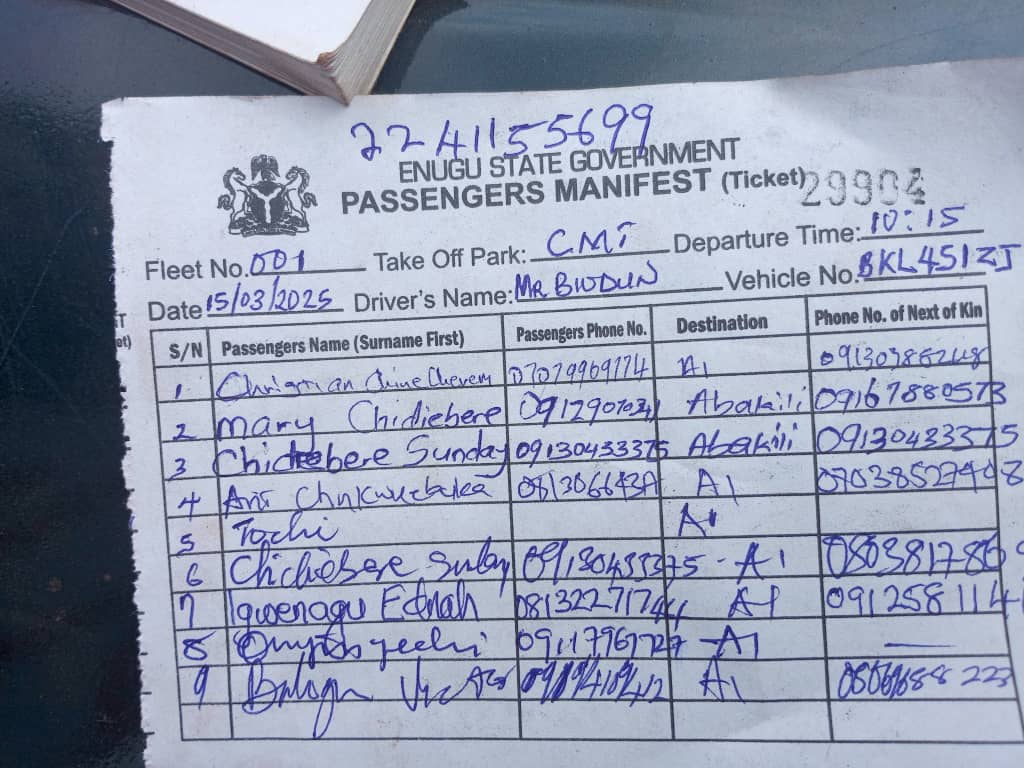 2241155699
ENUGU STATE GOVERNMENT
PASSENGERS MANIFEST (Ticket) 29904
Fleet No. 001 Take Off Park: CMT Departure Time: 10:15
Date 15/03/2025 Driver's Name: MR BIODUN Vehicle No. BKL451ZJ
S/N Passengers Name (Surname First) Passengers Phone No. Destination Phone No. of Next of Kin
1 Christian 07079969174 A1
2 Mary Chidiebere Abakili 09167880573
3 Chidiebere Sunday 09130433375 Abakili 09130433375
4 A1
5 Tochi A1
6 Chidiebere Sunday 09130433375 - A1
7 Igwenagu Ednah A1 091258114
8 09117961727 - A1 —
9 A1